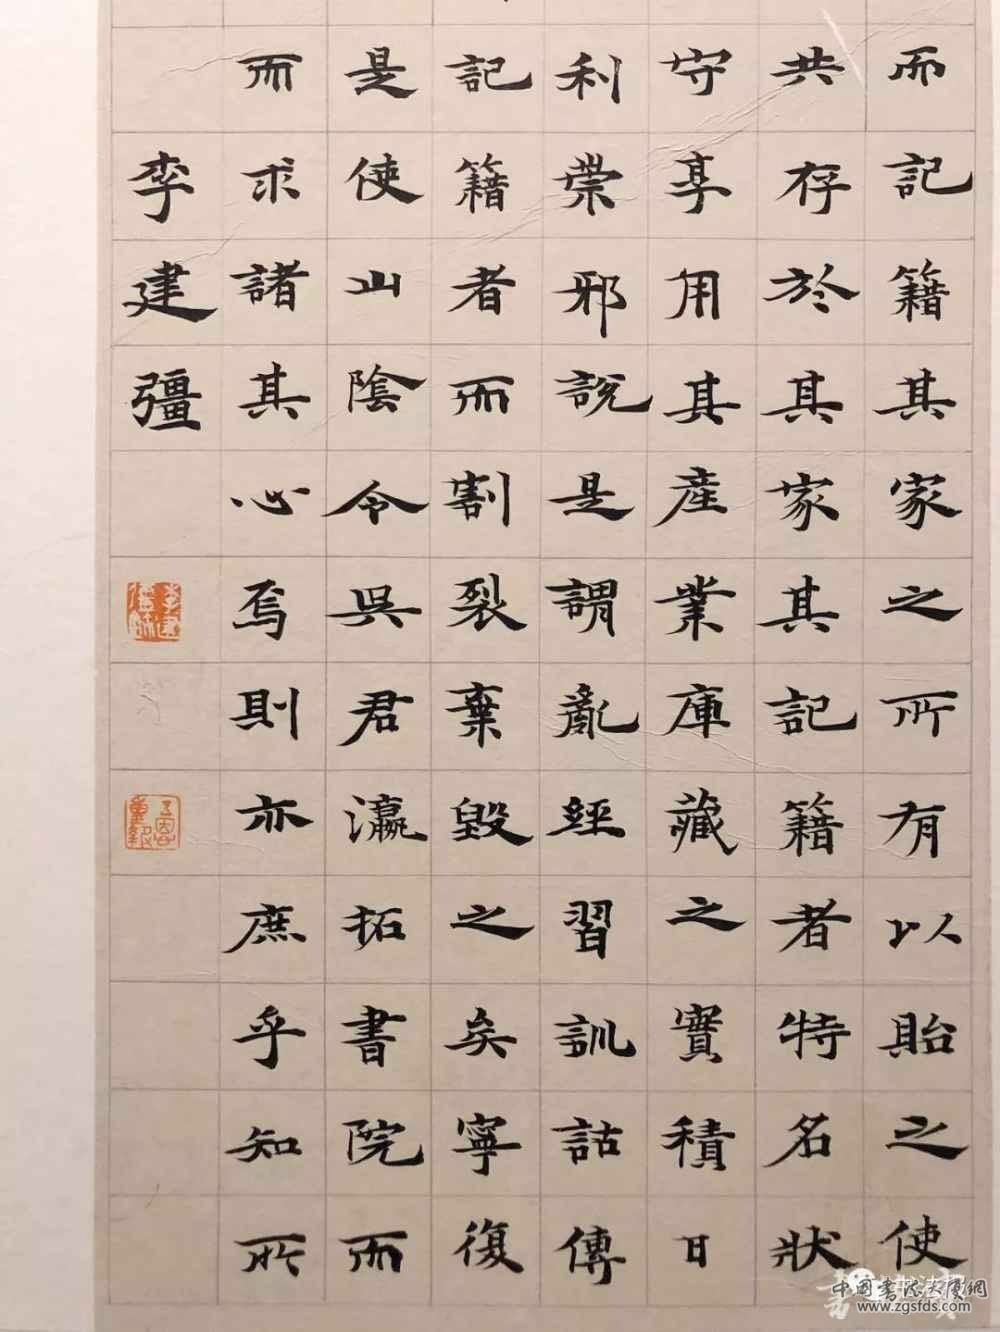 而記籍其家之所有以貽之使
共存於其家其記籍者特名狀
守享用其產業庫藏之實積日
利崇邪說是謂亂經習訓詁傳
記籍者而割裂棄毀之矣寧復
是使山陰令吳君瀛拓書院而
而求諸其心焉則亦庶乎知所
李建彊
www.zgsfds.com